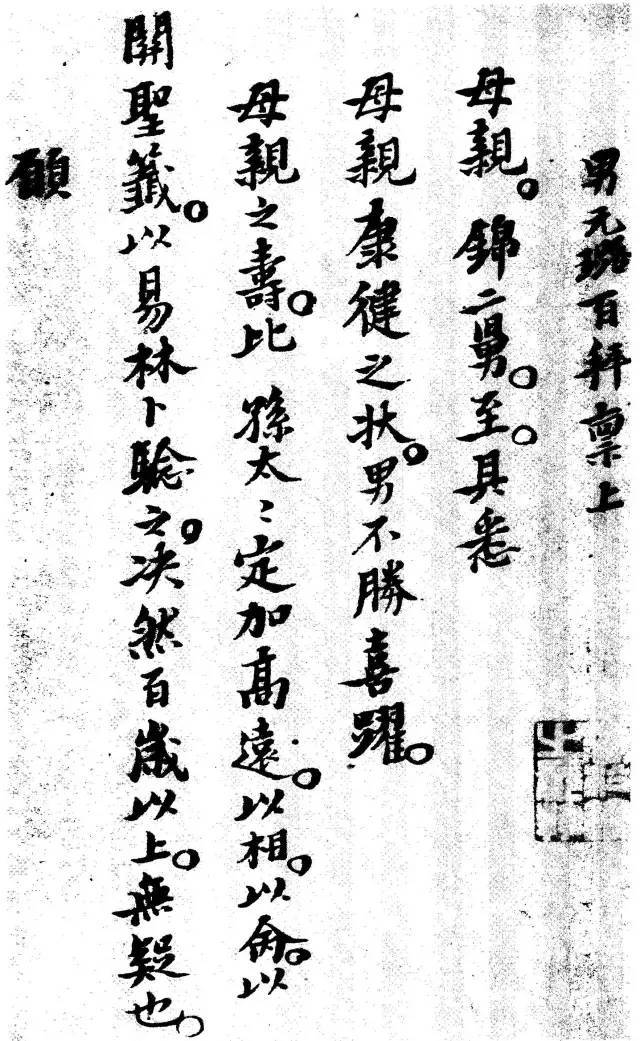 男元璐百拜稟上
母親。錦二舅。至。具悉
母親康健之狀。男不勝喜躍。
母親之壽。比孫太〻定加高遠。以相。以命。以
關聖籤。以易林卜驗之。决然百歲以上。無疑也。
願